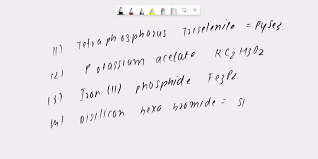 11) Tetraphosphorus Triselenide = P4Se3.
12) Potassium acetate KC2H3O2
13) Iron (11) phosphide Fe3P2
14) Disilicon hexabromide = Si